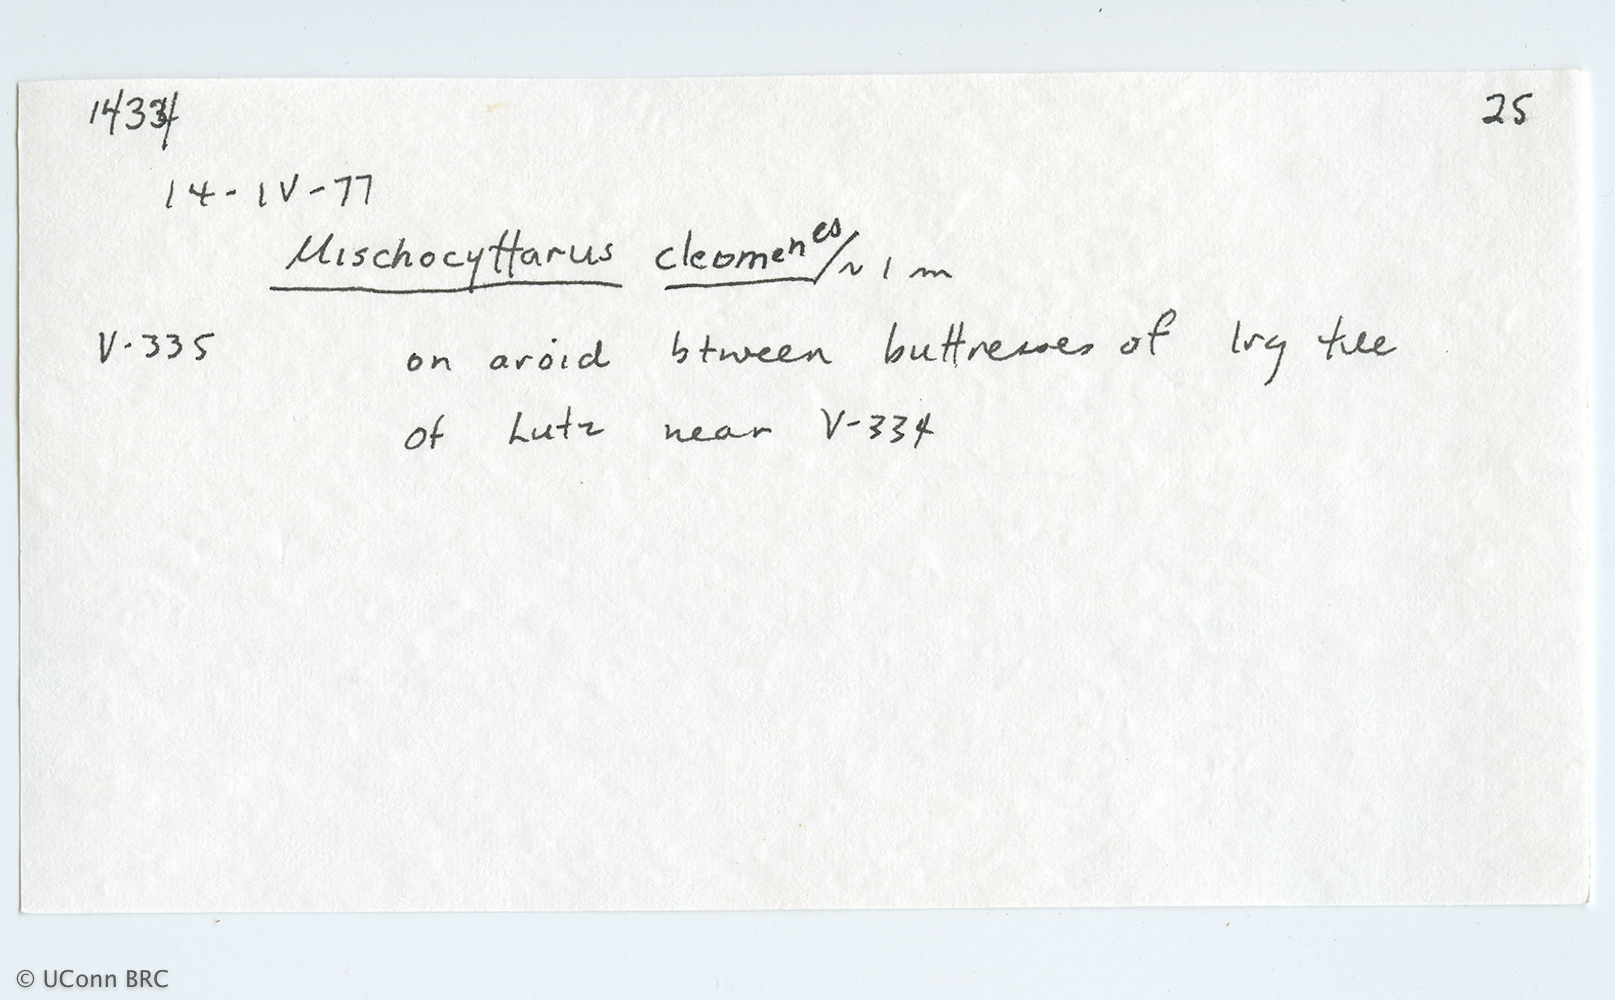 14334 25
14-IV-77
Mischocyttarus cleomenes/~1 m
V-335 on aroid btween buttresses of lrg tree
of Lutz near V-334
© UConn BRC